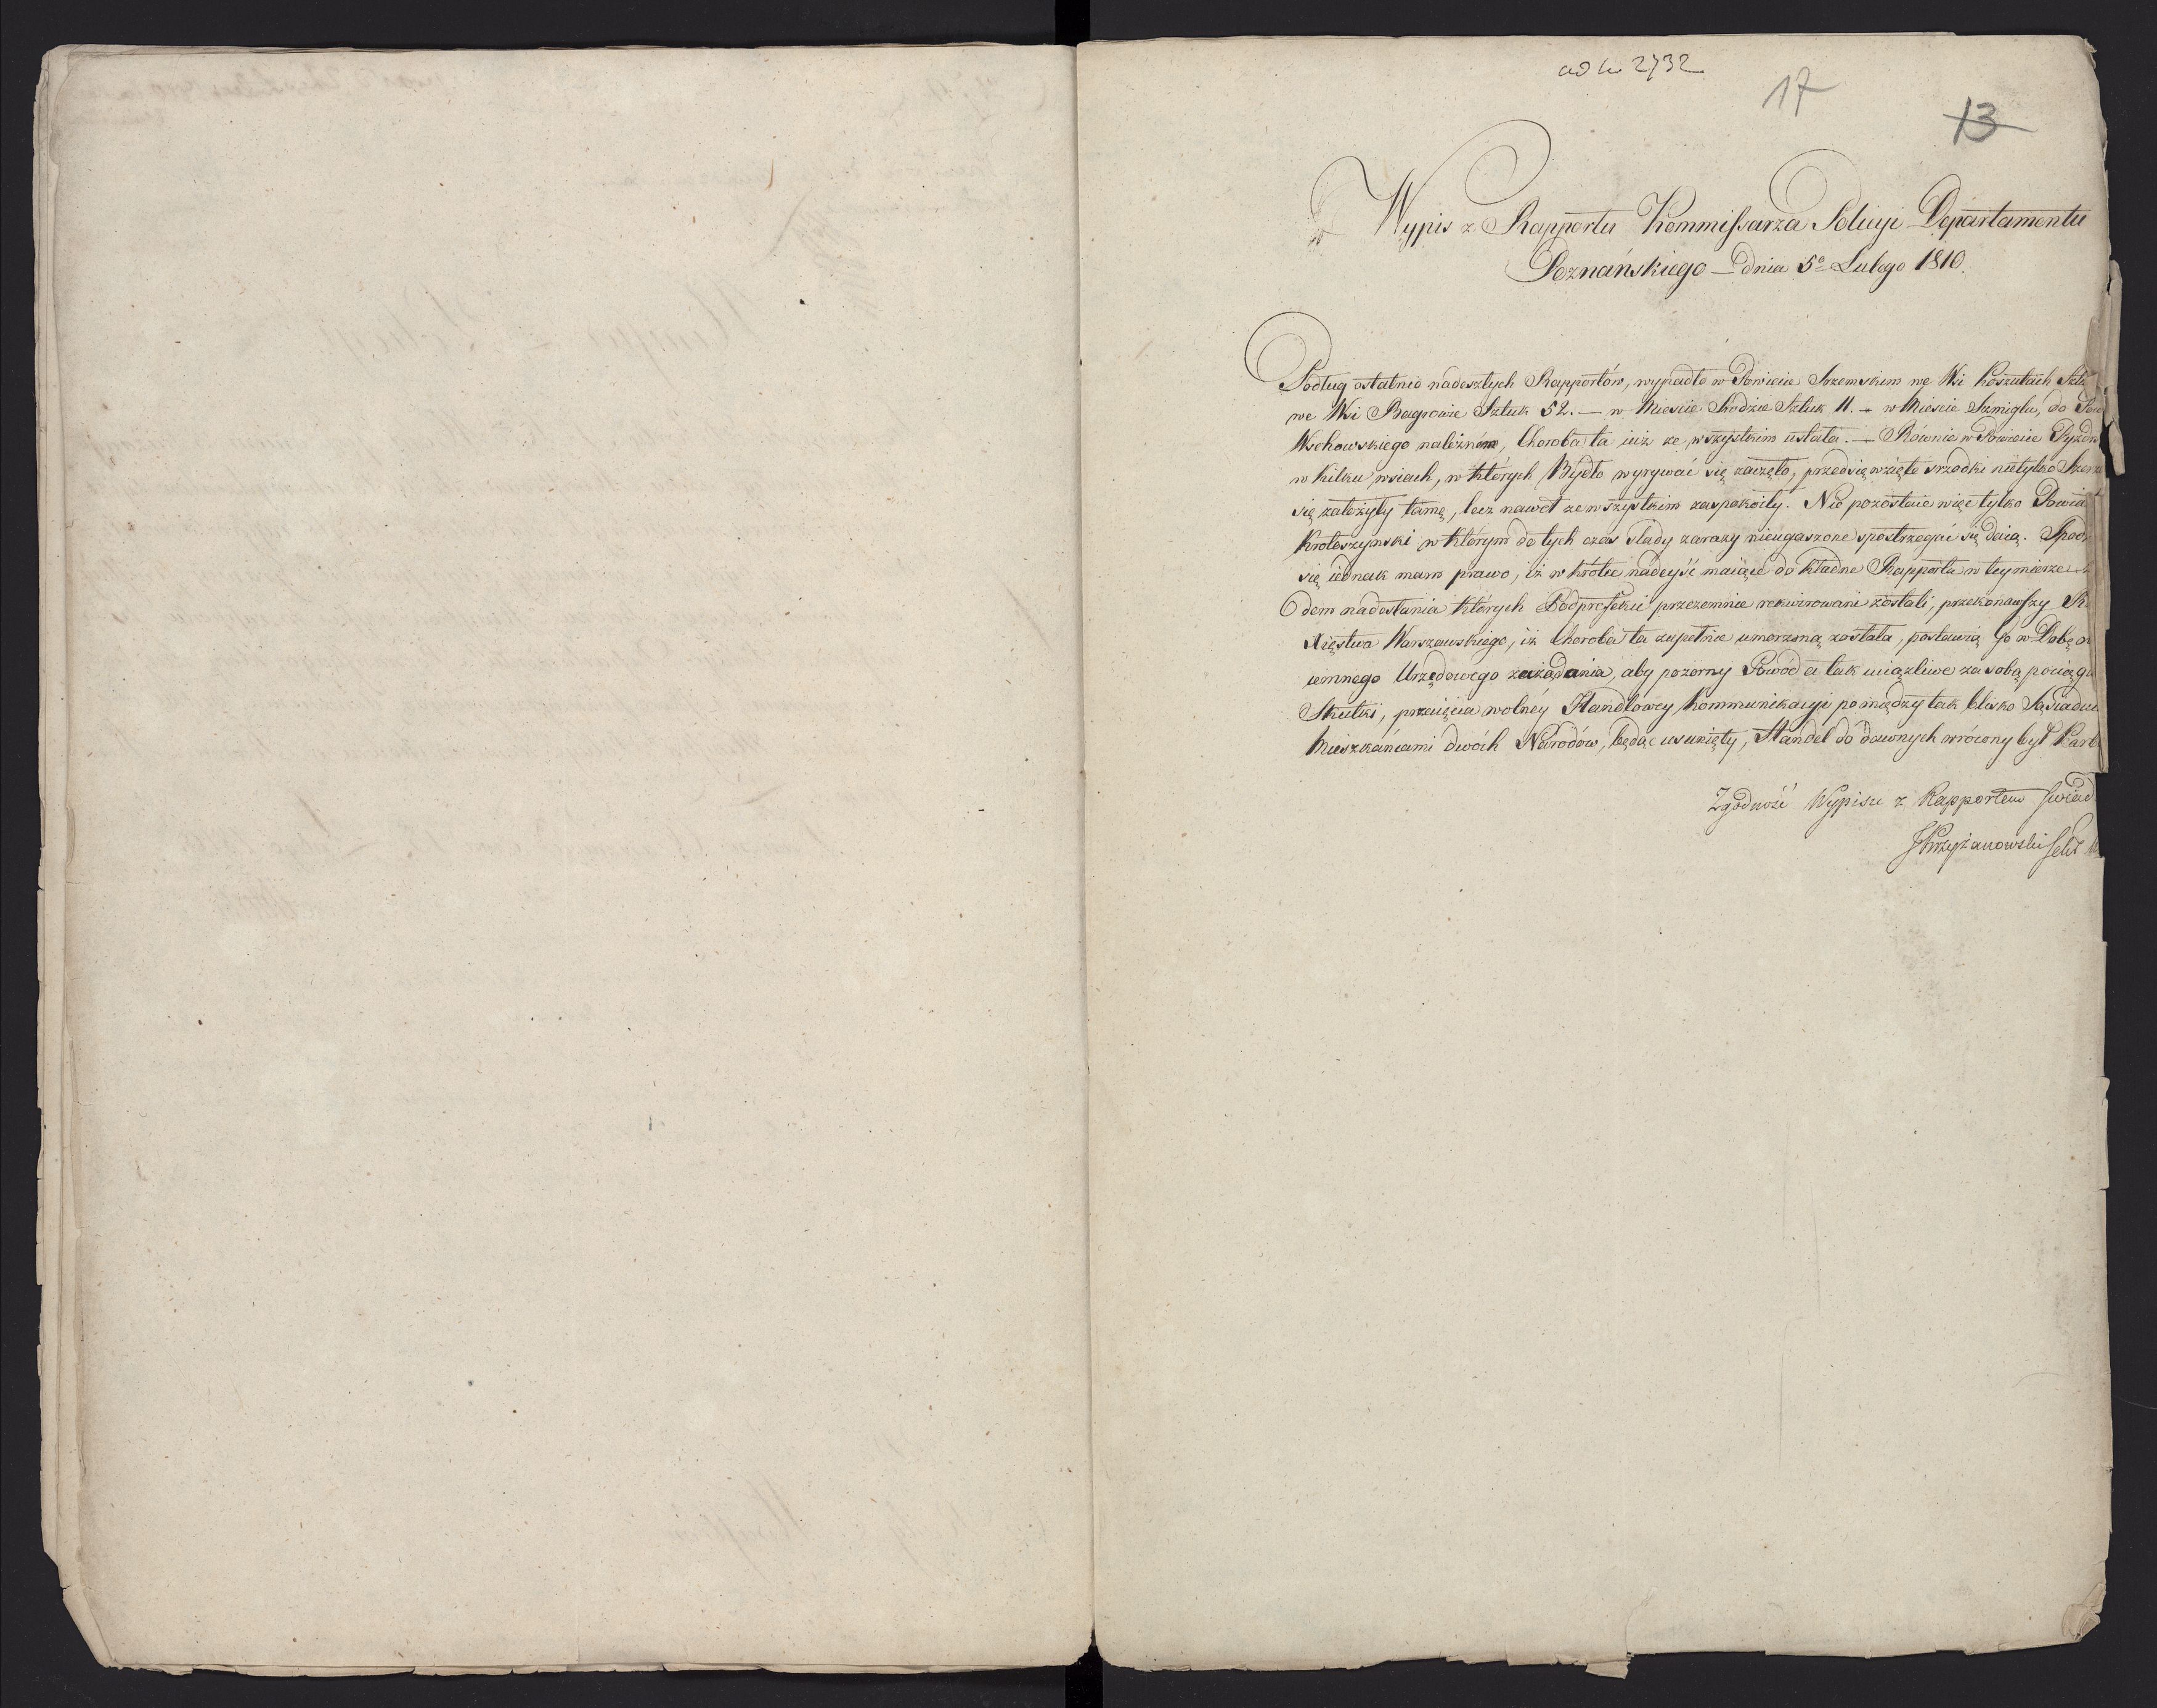 ad No 2732
17
13
Wypis z Rapportu Kommissarza Policyi Departamentu
Poznańskiego — dnia 5º Lutego 1810.
Podług ostatnio nadeszłych Rapportów, wypadło w Powiecie Szremskim we Wsi Koszutach
we Wsi Bagrowie Sztuk 52. — w Mieście Srodzie Sztuk 11. — w Mieście Szmiglu, do
Wschowskiego należném, Choroba ta iuż ze wszystkim ustała. — Równie w Powiecie
w kilku wsiach, w których Bydło wyrywać się zaczęło, przedsięwzięte srzodki nietylko
się założyły tamę, lecz nawet ze wszystkim zaspokoiły. Nie pozostaie więc tylko Powiat
Krotoszynski w którym do tych czas slady zarazy nieugaszone spostrzegać się daią.
się iednak mam prawo, iż wkrótce nadeyść maiące dokładne Rapporta w tey mierze
dem nadesłania których Podprefekci przezemnie rekwirowani zostali, przekonawszy
Xięstwa Warszawskiego, iż Choroba ta zupełnie umorzoną została, postawią Go w Dobę
iemnego Urzędowego zażądania, aby pozorny Powód a tak uciążliwe za sobą
Skutki, przecięcia wolnéy Handlowey Kommunikacyi pomiędzy tak blisko
Mieszkańcami dwóch Narodów, będąc usunięty, Handel do dawnych wrócony był
Zgodność Wypisu z Rapportem
JKrzyżanowski